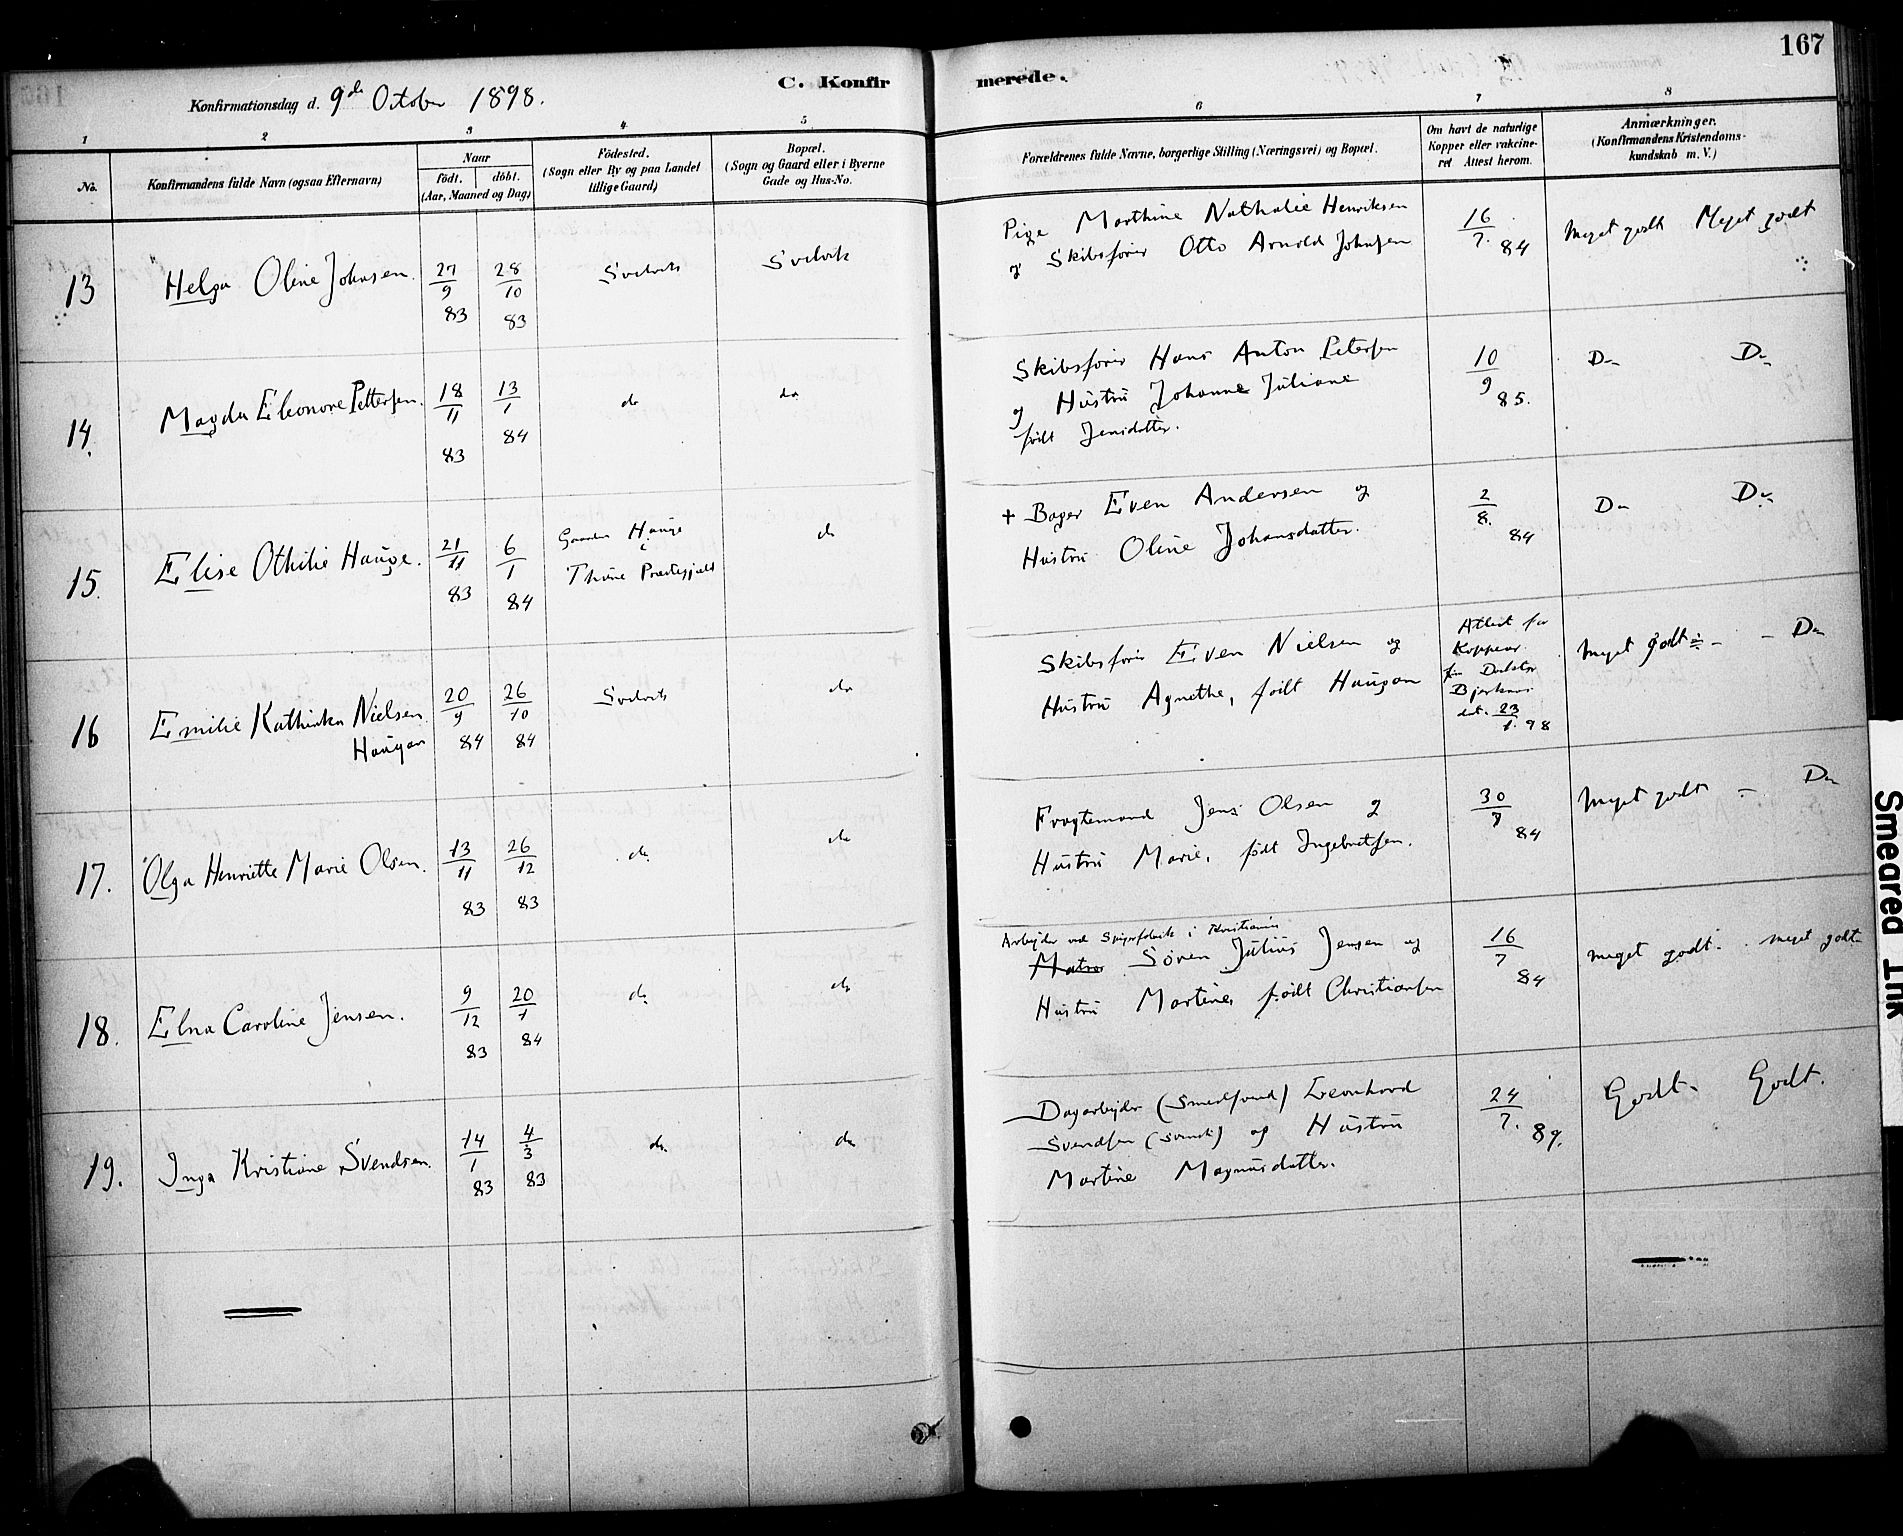 167
Konfirmationsdag d. 9de October 1898.
C. Konfirmerede.
1 2 3 4 5 6 7 8
No.
Konfirmandens fulde Navn (ogsaa Efternavn)
Naar
födt. döbt.
(Aar, Maaned og Dag)
Födested.
(Sogn eller By og paa Landet
tillige Gaard)
Bopæl.
(Sogn og Gaard eller i Byerne
Gade og Hus-No.
Forældrenes fulde Navne, borgerlige Stilling (Næringsvei) og Bopæl.
Om havt de naturlige
Kopper eller vakcine-
ret Attest herom.
Anmærkninger.
(Konfirmandens Kristendoms-
kundskab m. V.)
13 Helga Oline Johnsen. 27/9 83 28/10 83 Svelvik Svelvik
Pige Marthine Nathalie Henriksen
og Skibsfører Otto Arnold Johnsen
16/7. 84 Meget godt Meget godt
14. Magda Eleonore Pettersen. 18/11 83 13/1 84 do do
Skibsfører Hans Anton Petersen
og Hustru Johanne Juliane
født Jensdatter.
10/9 85. Do Do
15. Elise Othilie Hauge. 21/11 83 6/1 84
Gaarden Hauge
i
Thune Præstegjeld
do
+ Bager Even Andersen og
Hustru Oline Johansdatter.
2/8. 84 Do Do
16 Emilie Kathinka Nielsen
Haugan
20/9 84 26/10 84 Svelvik do
Skibsfører Even Nielsen og
Hustru Agnethe, født Haugan
Attest for
Koppear
fra Doktor
dat. 23/1. 98
Meget godt - - Do
17. Olga Henriette Marie Olsen. 13/11 83 26/12 83 do do
Fragtemand Jens Olsen og
Hustru Marie, født Ingebretsen.
30/7 84 Meget godt - Do
18. Elna Caroline Jensen. 9/12 83 20/1 84 do do
Arbejder ved Spigerfabrik i Kristiania
Matros Sören Julius Jensen og
Hustru Martine, født Christiansen
16/7 84 meget godt. meget godt
19. Inga Kristiane Svendsen. 14/1 83 4/3 83 do. do
Dagarbejder (Smedsvend) Leonhard
Svendsen (Svensk) og Hustru
Martine Magnusdatter.
24/7. 89. Godt. Godt.
Smeared Ink